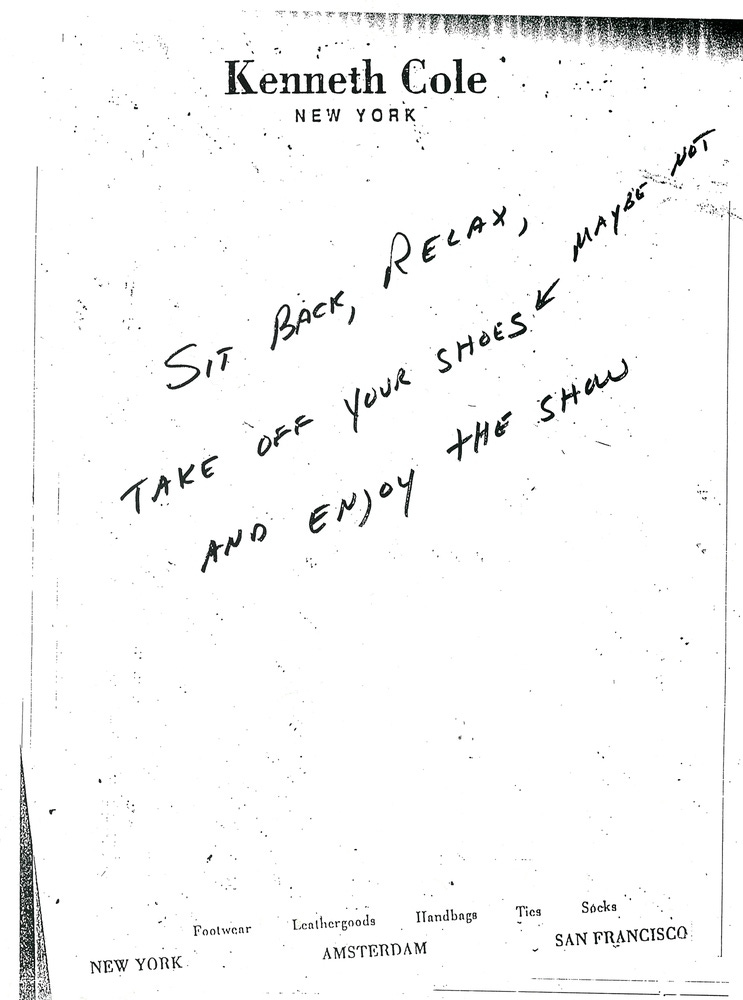 Kenneth Cole
NEW YORK
MAYBE NOT
SIT BACK, RELAX,
TAKE OFF YOUR SHOES
AND ENJOY THE SHOW
Footwear Leathergoods Handbags Ties Socks
NEW YORK AMSTERDAM SAN FRANCISCO